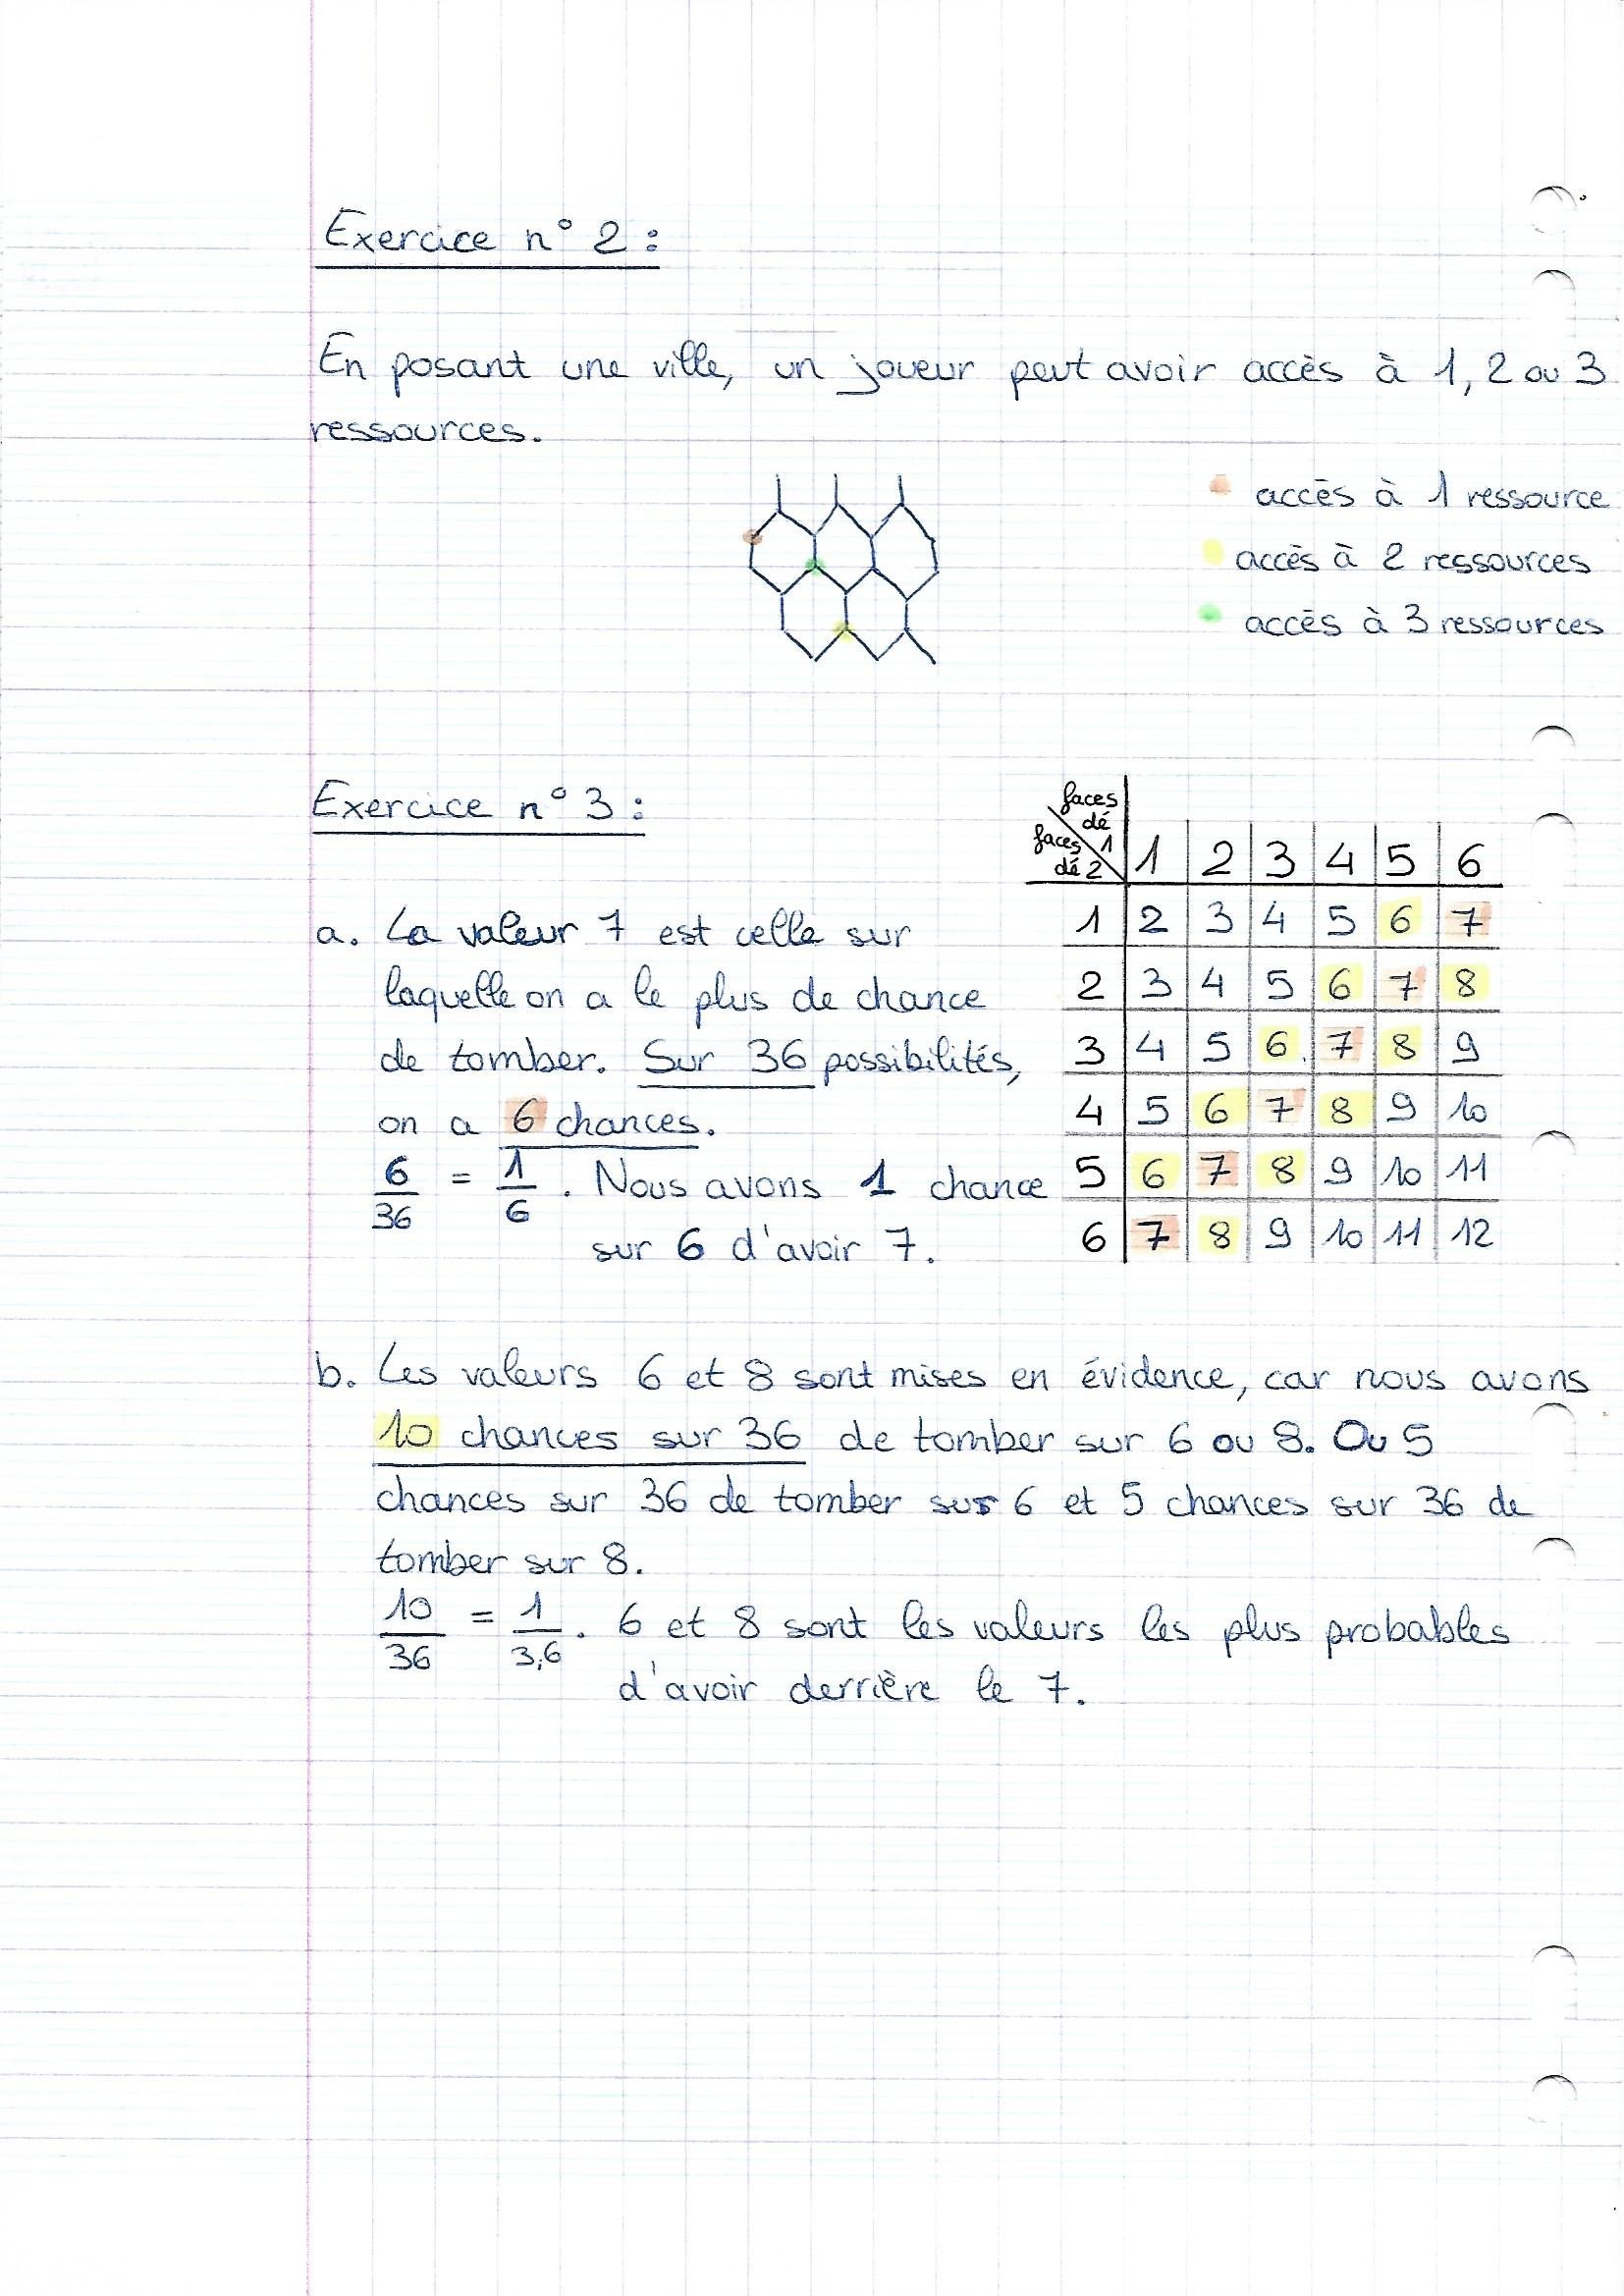 Exercice n° 2 :
En posant une ville, un joueur peut avoir accès à 1, 2 ou 3
ressources.
accès à 1 ressource
accès à 2 ressources
accès à 3 ressources
Exercice n° 3 :
faces dé 1
faces dé 2
1 2 3 4 5 6
1 2 3 4 5 6 7
2 3 4 5 6 7 8
3 4 5 6 7 8 9
4 5 6 7 8 9 10
5 6 7 8 9 10 11
6 7 8 9 10 11 12
a. La valeur 7 est celle sur
laquelle on a le plus de chance
de tomber. Sur 36 possibilités,
on a 6 chances.
6/36 = 1/6. Nous avons 1 chance
sur 6 d'avoir 7.
b. Les valeurs 6 et 8 sont mises en évidence, car nous avons
10 chances sur 36 de tomber sur 6 ou 8. Ou 5
chances sur 36 de tomber sur 6 et 5 chances sur 36 de
tomber sur 8.
10/36 = 1/3,6. 6 et 8 sont les valeurs les plus probables
d'avoir derrière le 7.